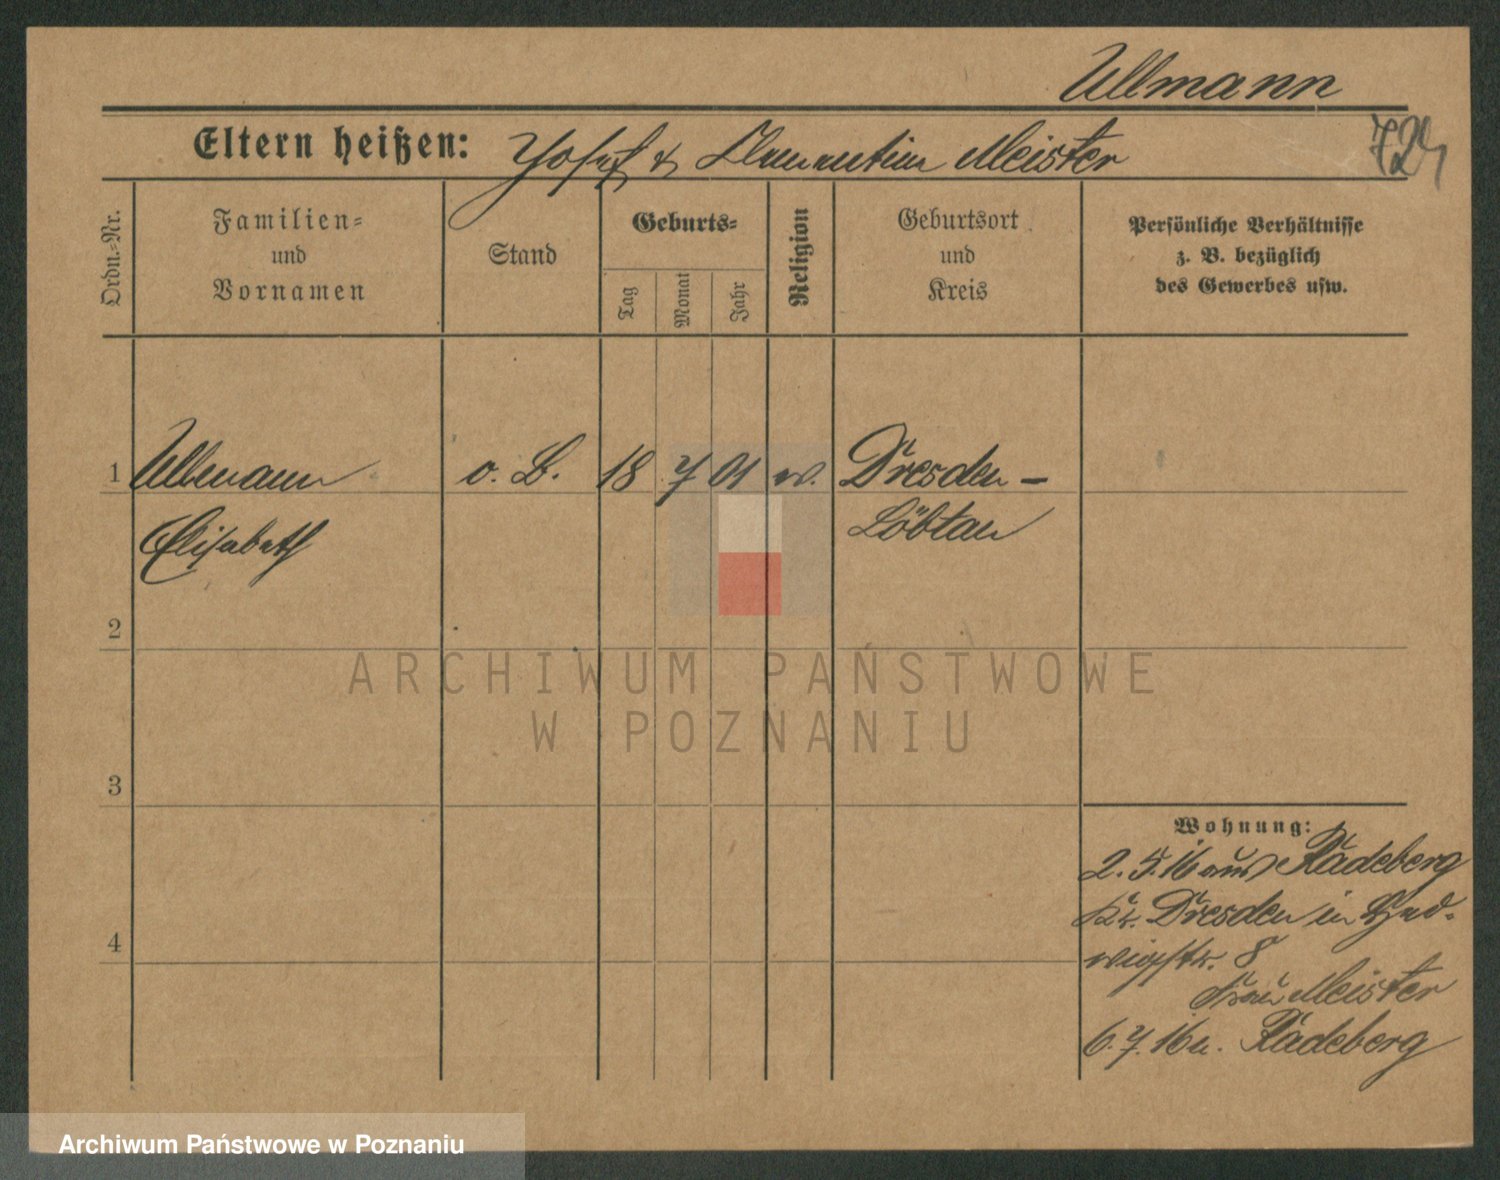 Ullmann
Eltern heißen: Josef & Meister
Ordn.-Nr.
Familien-
und
Vornamen
Stand
Geburts-
Tag
Monat
Jahr
Religion
Geburtsort
und
Kreis
Persönliche Verhältnisse
z. B. bezüglich
des Gewerbes usw.
1 Ullmann o. B. 18 7 01 Dresden-
Elisabeth Löbtau
2
ARCHIWUM PAŃSTWOWE
W POZNANIU
3
Wohnung:
2. 5. 16 aus Radeberg
Kr. Dresden in Hed-
wigstr. 8
4
Frau Meister
6. 7. 16 n. Radeberg
Archiwum Państwowe w Poznaniu